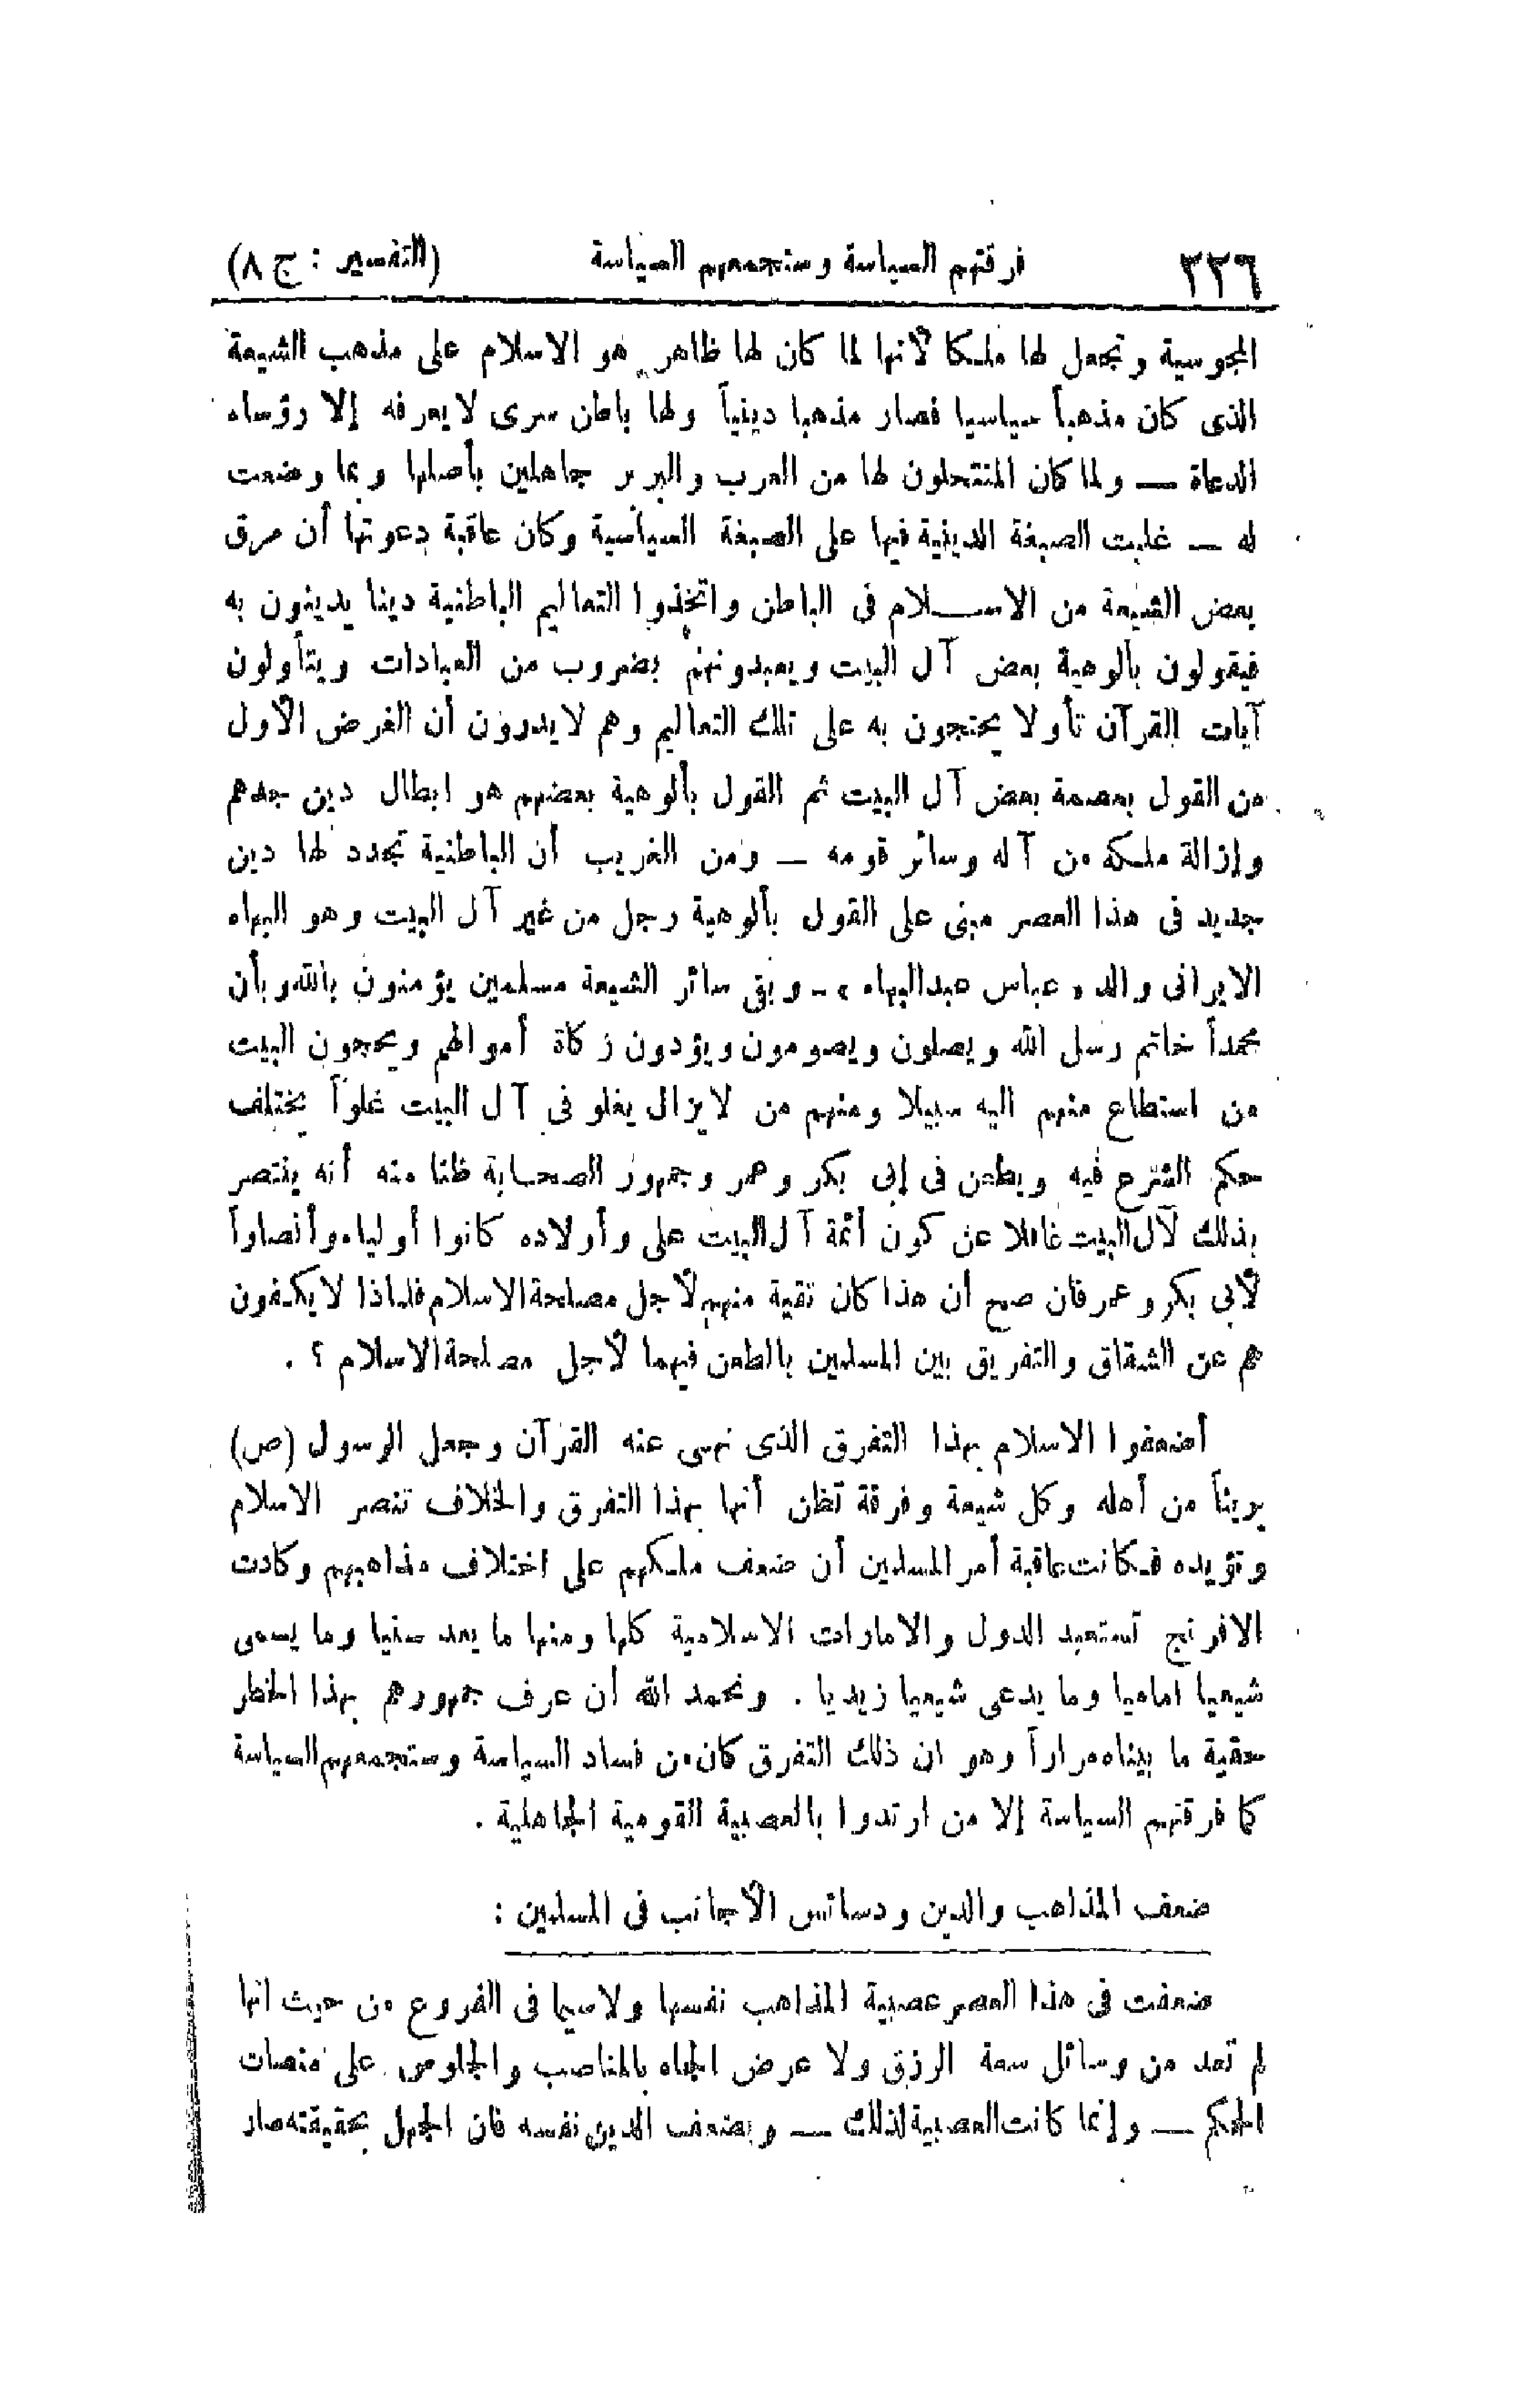 ٢٢٦ فرقتهم السياسة وستجمعهم السياسة (التفسير : ج ٨)
المجوسية وتجعل لها ملكا لأنها لما كان لها ظاهر هو الاسلام على مذهب الشيعة
الذى كان مذهباً سياسيا فصار مذهبا دينياً ولها باطن سرى لا يعرفه إلا رؤساء
الدعاة — ولما كان المنتحلون لها من العرب والبربر جاهلين بأصلها وبما وضعت
له — غلبت الصبغة الدينية فيها على الصبغة السياسية وكان عاقبة دعوتها أن مرق
بعض الشيعة من الاسـلام فى الباطن واتخذوا التعاليم الباطنية دينا يدينون به
فيقولون بألوهية بعض آل البيت ويعبدونهم بضروب من العبادات ويتأولون
آيات القرآن تأولا يحتجون به على تلك التعاليم وهم لا يدرون أن الغرض الأول
من القول بعصمة بعض آل البيت ثم القول بألوهية بعضهم هو ابطال دين جدهم
وإزالة ملكه من آله وسائر قومه — ومن الغريب أن الباطنية تجدد لها دين
جديد فى هذا العصر مبنى على القول بألوهية رجل من غير آل البيت وهو البهاء
الايرانى والد « عباس عبدالبهاء » — وبقى سائر الشيعة مسلمين يؤمنون بالله وبأن
محمداً خاتم رسل الله ويصلون ويصومون ويؤدون زكاة أموالهم ويحجون البيت
من استطاع منهم اليه سبيلا ومنهم من لا يزال يغلو فى آل البيت غلواً يختلف
حكم الشرع فيه ويطعن فى إبى بكر وعمر وجمهور الصحابة ظنا منه أنه ينتصر
بذلك لآل البيت غافلا عن كون أئمة آل البيت على وأولاده كانوا أولياء وأنصاراً
لأبى بكر وعمر فان صح أن هذا كان تقية منهم لأجل مصلحة الاسلام فلماذا لا يكفون
هم عن الشقاق والتفريق بين المسلمين بالطعن فيهما لأجل مصلحة الاسلام ؟ .
أضعفوا الاسلام بهذا التفرق الذى نهى عنه القرآن وجعل الرسول (ص)
بريئاً من أهله وكل شيعة وفرقة تظن أنها بهذا التفرق والخلاف تنصر الاسلام
وتؤيده فكانت عاقبة أمر المسلمين أن ضعف ملكهم على اختلاف مذاهبهم وكادت
الافرنج تستعبد الدول والامارات الاسلامية كلها ومنها ما يعد سنيا وما يسمى
شيعيا اماميا وما يدعى شيعيا زيديا . ونحمد الله أن عرف جمهورهم بهذا الخطر
حقية ما بيناه مراراً وهو ان ذلك التفرق كان من فساد السياسة وستجمعهم السياسة
كما فرقتهم السياسة إلا من ارتدوا بالعصبية القومية الجاهلية .
ضعف المذاهب والدين ودسائس الأجانب فى المسلمين :
ضعفت فى هذا العصر عصبية المذاهب نفسها ولاسيما فى الفروع من حيث انها
لم تعد من وسائل سعة الرزق ولا عرض الجاه بالمناصب والجلوس على منصات
الحكم — وإنما كانت العصبية لذلك — وبضعف الدين نفسه فان الجهل بحقيقته صار